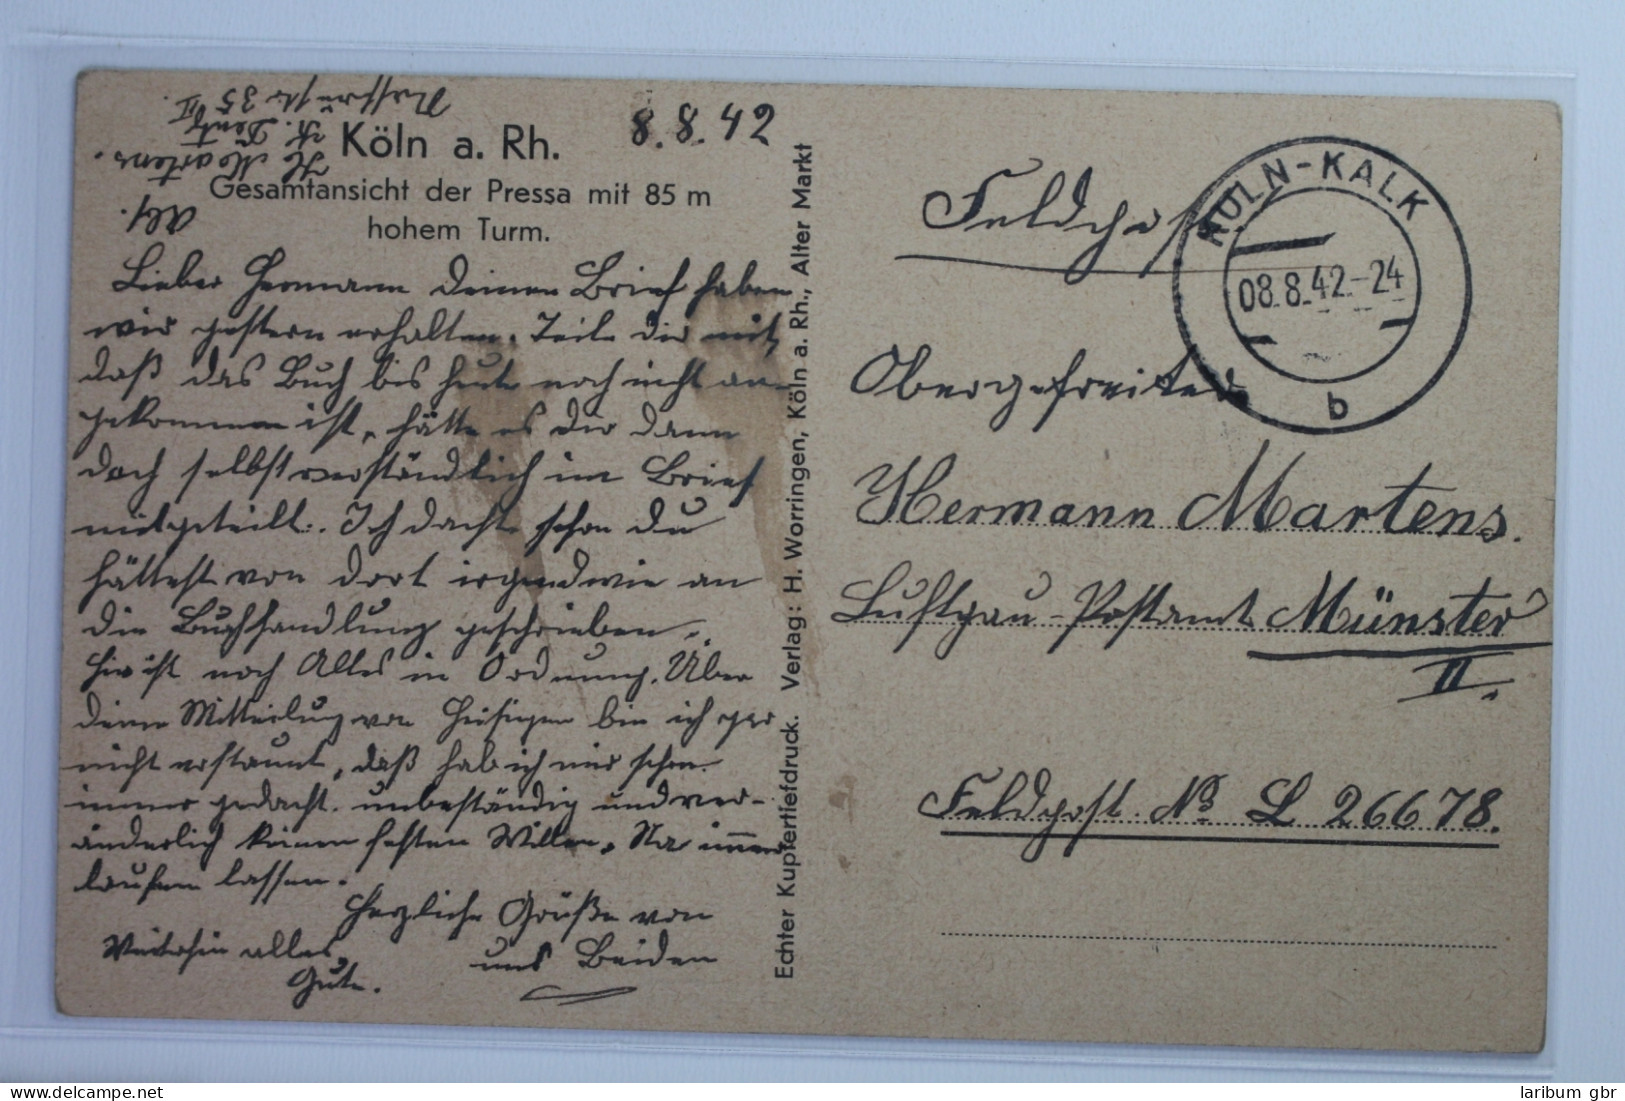 Köln a. Rh.
8.8.42
Gesamtansicht der Pressa mit 85 m
hohem Turm.
Abs.
H. Martens.
K. Deutz
35
Lieber Hermann deinen Brief haben
wir gestern erhalten. Teile dir mit,
daß das Buch bis heute noch nicht an-
gekommen ist, hätte es dir dann
doch selbstverständlich im Brief
mitgeteilt. Ich dachte schon du
hättest von dort irgendwie an
die Buchhandlung geschrieben.
Hier ist noch Alles in Ordnung. Über
deine Mitteilung von bin ich gar
nicht erstaunt, daß hab ich mir schon
immer gedacht. unbeständig und ver-
änderlich keinen festen Willen. Na immer
laufen lassen.
Herzliche Grüße von
uns Beiden
Weiterhin alles
Gute.
Echter Kupfertiefdruck. Verlag: H. Worringen, Köln a. Rh., Alter Markt
Feldpost
KÖLN-KALK
08.8.42-24
b
Obergefreiter
Hermann Martens.
Luftgau-Postamt Münster
II.
Feldpost No L 26678.
laribum gbr